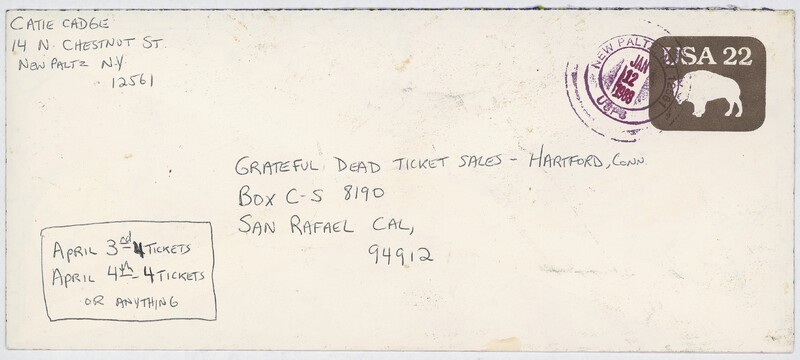 CATIE CADGE
14 N. CHESTNUT ST.
NEW PALTZ N.Y
12561
NEW PALTZ
JAN
12
1988
USPS
USA 22
GRATEFUL DEAD TICKET SALES - HARTFORD, CONN
BOX C-S 8190
SAN RAFAEL CAL,
94912
APRIL 3rd - 4 TICKETS
APRIL 4th - 4 TICKETS
OR ANYTHING